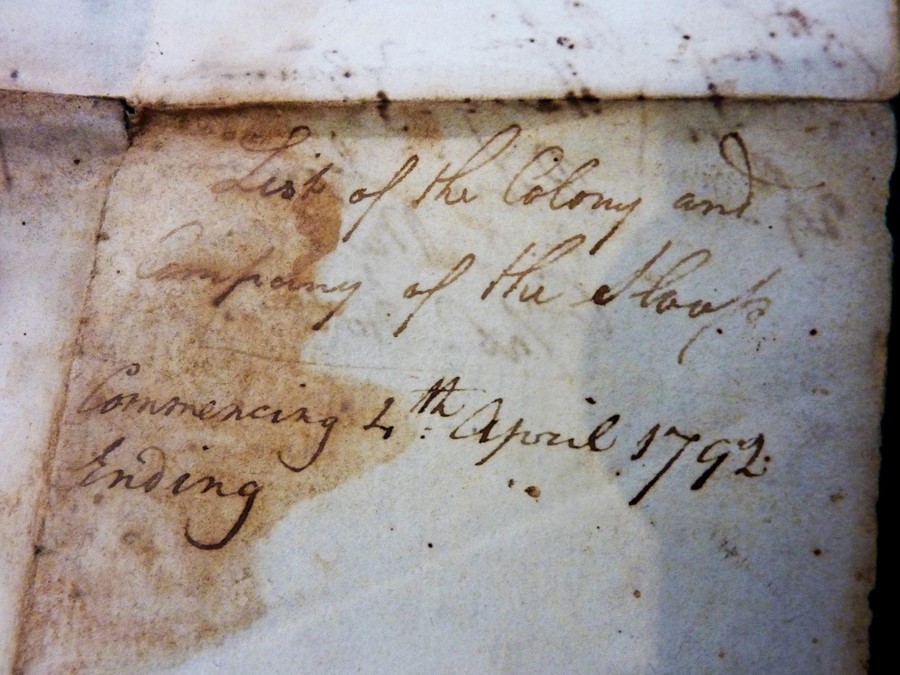 List of the Colony and
Company of the Sloop
Commencing 4th April 1792
Ending